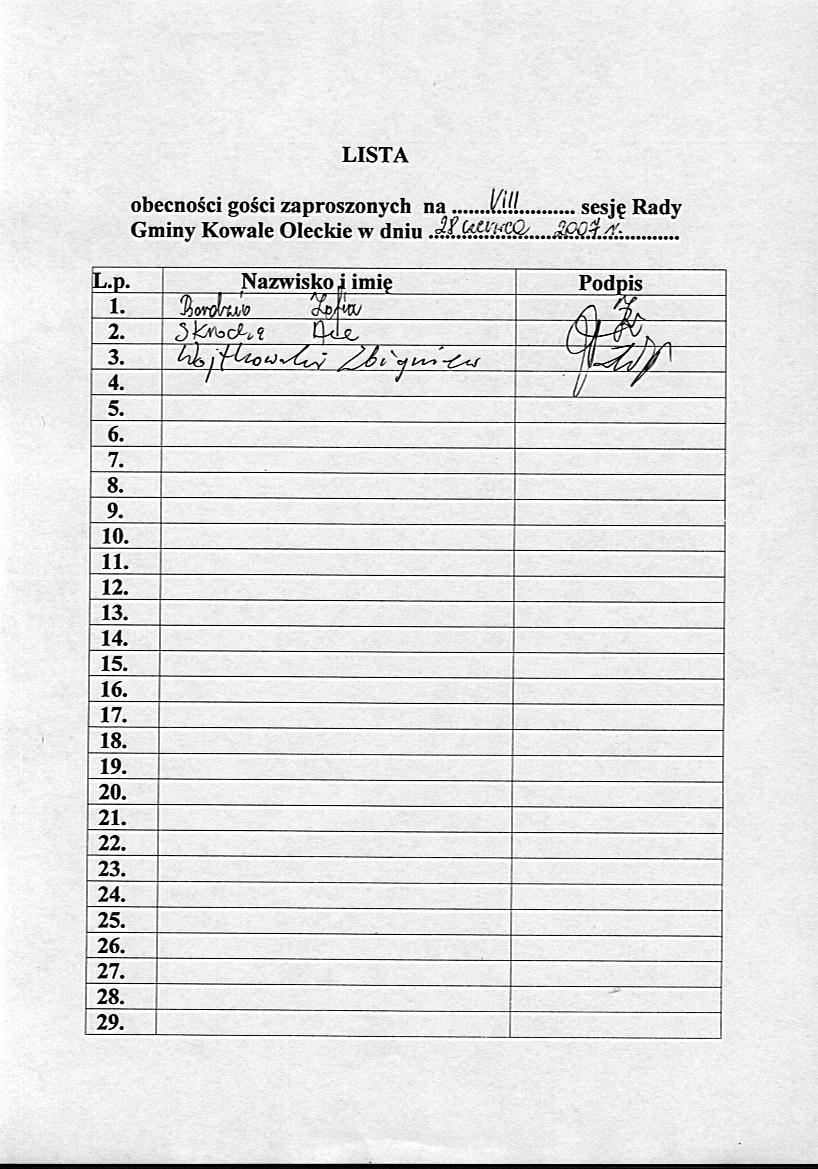 LISTA
obecności gości zaproszonych na ......VIII............ sesję Rady
Gminy Kowale Oleckie w dniu ..28 czerwca.....2007 r............
L.p. Nazwisko i imię Podpis
1. Zofia
2. Ala
3. Wojtkowski Zbigniew
4.
5.
6.
7.
8.
9.
10.
11.
12.
13.
14.
15.
16.
17.
18.
19.
20.
21.
22.
23.
24.
25.
26.
27.
28.
29.